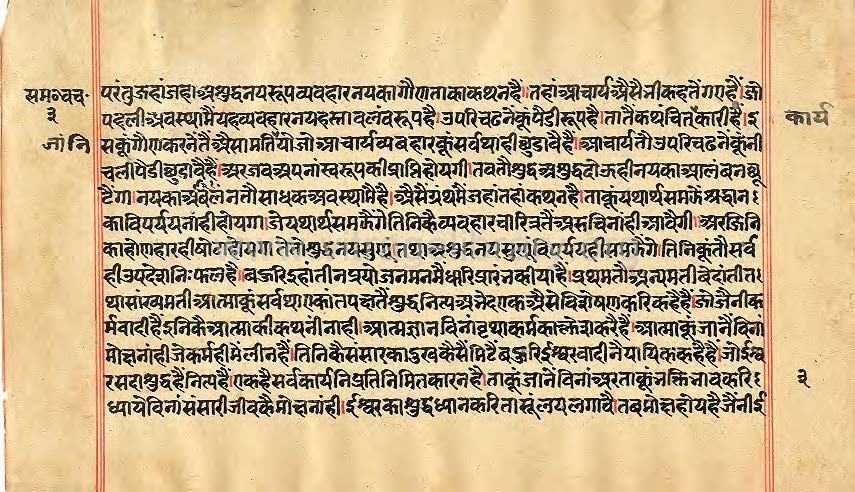 समयवच॰
३
जांनि
परंतु जहां जहां अशुद्धनयरूप व्यवहारनयका गौणताका कथन है। तहां आचार्य औसै नी कहतें गए हैं। जो
पहली अवस्थामैं यह व्यवहारनय हस्तावलंबरूप है। उपरि चढनेंकूं पैडीरूप है। तातैं कथंचित् कारी है। इ
सकूं गौण करनेंतैं औसा मति जो आचार्य व्यवहारकूं सर्वथाही छुडावै है। आचार्य तौ उपरि चढनेंकूं नी
चली पैडी छुडावै हैं। अर जब अपनां स्वरूपकी प्राप्ति होयगी। तब तौ शुद्ध अशुद्ध दोऊही नयका आलंबन छू
टैगा। नयका आलंबन तौ साधक अवस्थामैं है। औसै ग्रंथमैं जहां तहां कथन है। ताकूं यथार्थ समझें श्रद्धान
का विपर्यय नांही होयगा। जे यथार्थ समझेंगे तिनिकै व्यवहार चारित्रतैं अरुचि नांही आवैगी। अर जिनि
का होणहारही होयगा ते तौ शुद्धनय सुणूं तथा अशुद्धनय सुणूं विपर्ययही समझेंगे। तिनिकूं तौ सर्व
ही उपदेश निःफल है। बहुरि इहां तीन प्रयोजन मनमैं धारि प्रारंभ किया है। प्रथम तौ अन्यमती वेदांती त
था सांख्यमती आत्माकूं सर्वथा एकांत पक्षतैं शुद्ध नित्य अभेद एक औसे विशेषण करि कहै हैं। जैनी क
र्मवादी हैं इनिकै आत्माकी कथनी नांही। आत्मज्ञान विनां वृथा कर्मका क्लेश करै हैं। आत्माकूं जानें विनां
मोक्ष नांही जे कर्महीमैं लीन हैं। तिनिकै संसारका दुख कैसैं मिटै बहुरि ईश्वरवादी नैयायिक कहै हैं। जो ईश्व
र सदा शुद्ध है नित्य है। एक है सर्व कार्यनि प्रति निमित्त कारन है। ताकूं जानें विनां अर ताकूं भक्तिभाव करि
ध्याये विनां संसारी जीवकै मोक्ष नांही। ईश्वरका शुद्ध ध्यान करि तासूं लय लगावै। तब मोक्ष होय है जैनी ई
कार्य
३